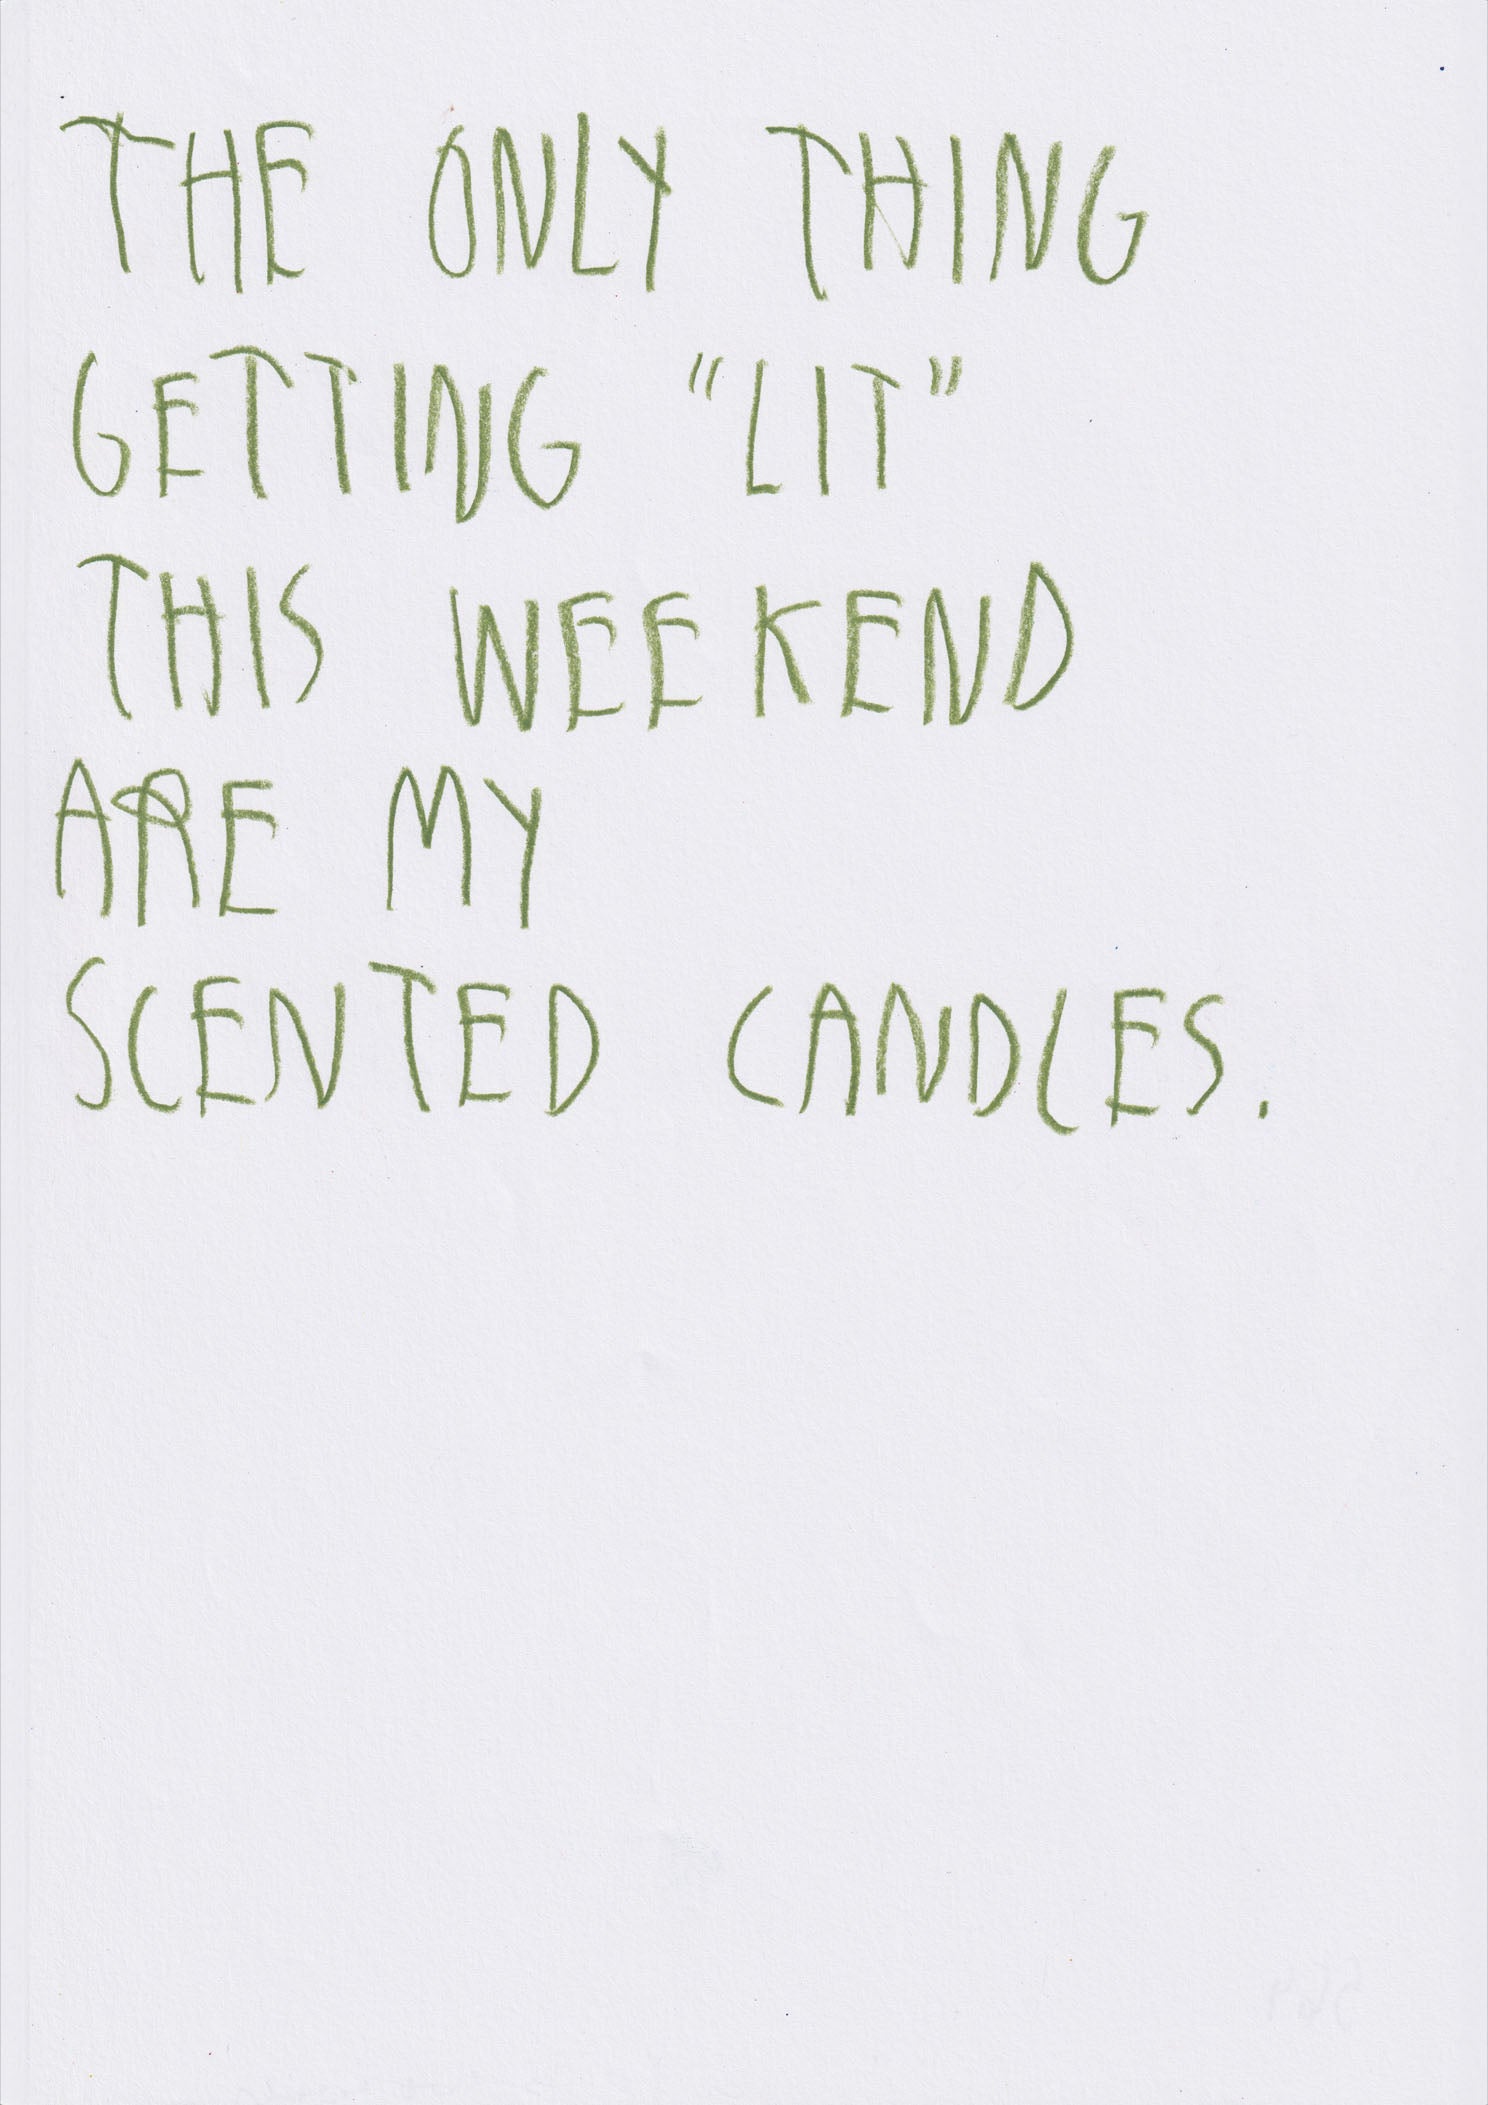 THE ONLY THING
GETTING “LIT”
THIS WEEKEND
ARE MY
SCENTED CANDLES.